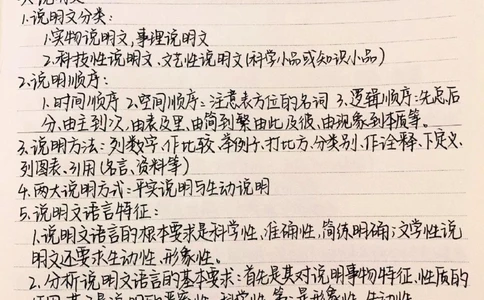 1.说明文分类:
1.实物说明文,事理说明文
2.科技性说明文、文艺性说明文(科学小品或知识小品)
2.说明顺序:
1.时间顺序 2.空间顺序:注意表方位的名词 3.逻辑顺序:先总后
分,由主到次,由表及里,由简到繁由此及彼,由现象到本质等。
3.说明方法:列数字、作比较、举例子、打比方、分类别、作诠释、下定义、
列图表、引用(名言、资料等)
4.两大说明方式:平实说明与生动说明
5.说明文语言特征:
1.说明文语言的根本要求是科学性,准确性,简练明确;文学性说
明文还要求生动性,形象性。
2.分析说明文语言的基本要求:首先是其对说明事物特征、性质的